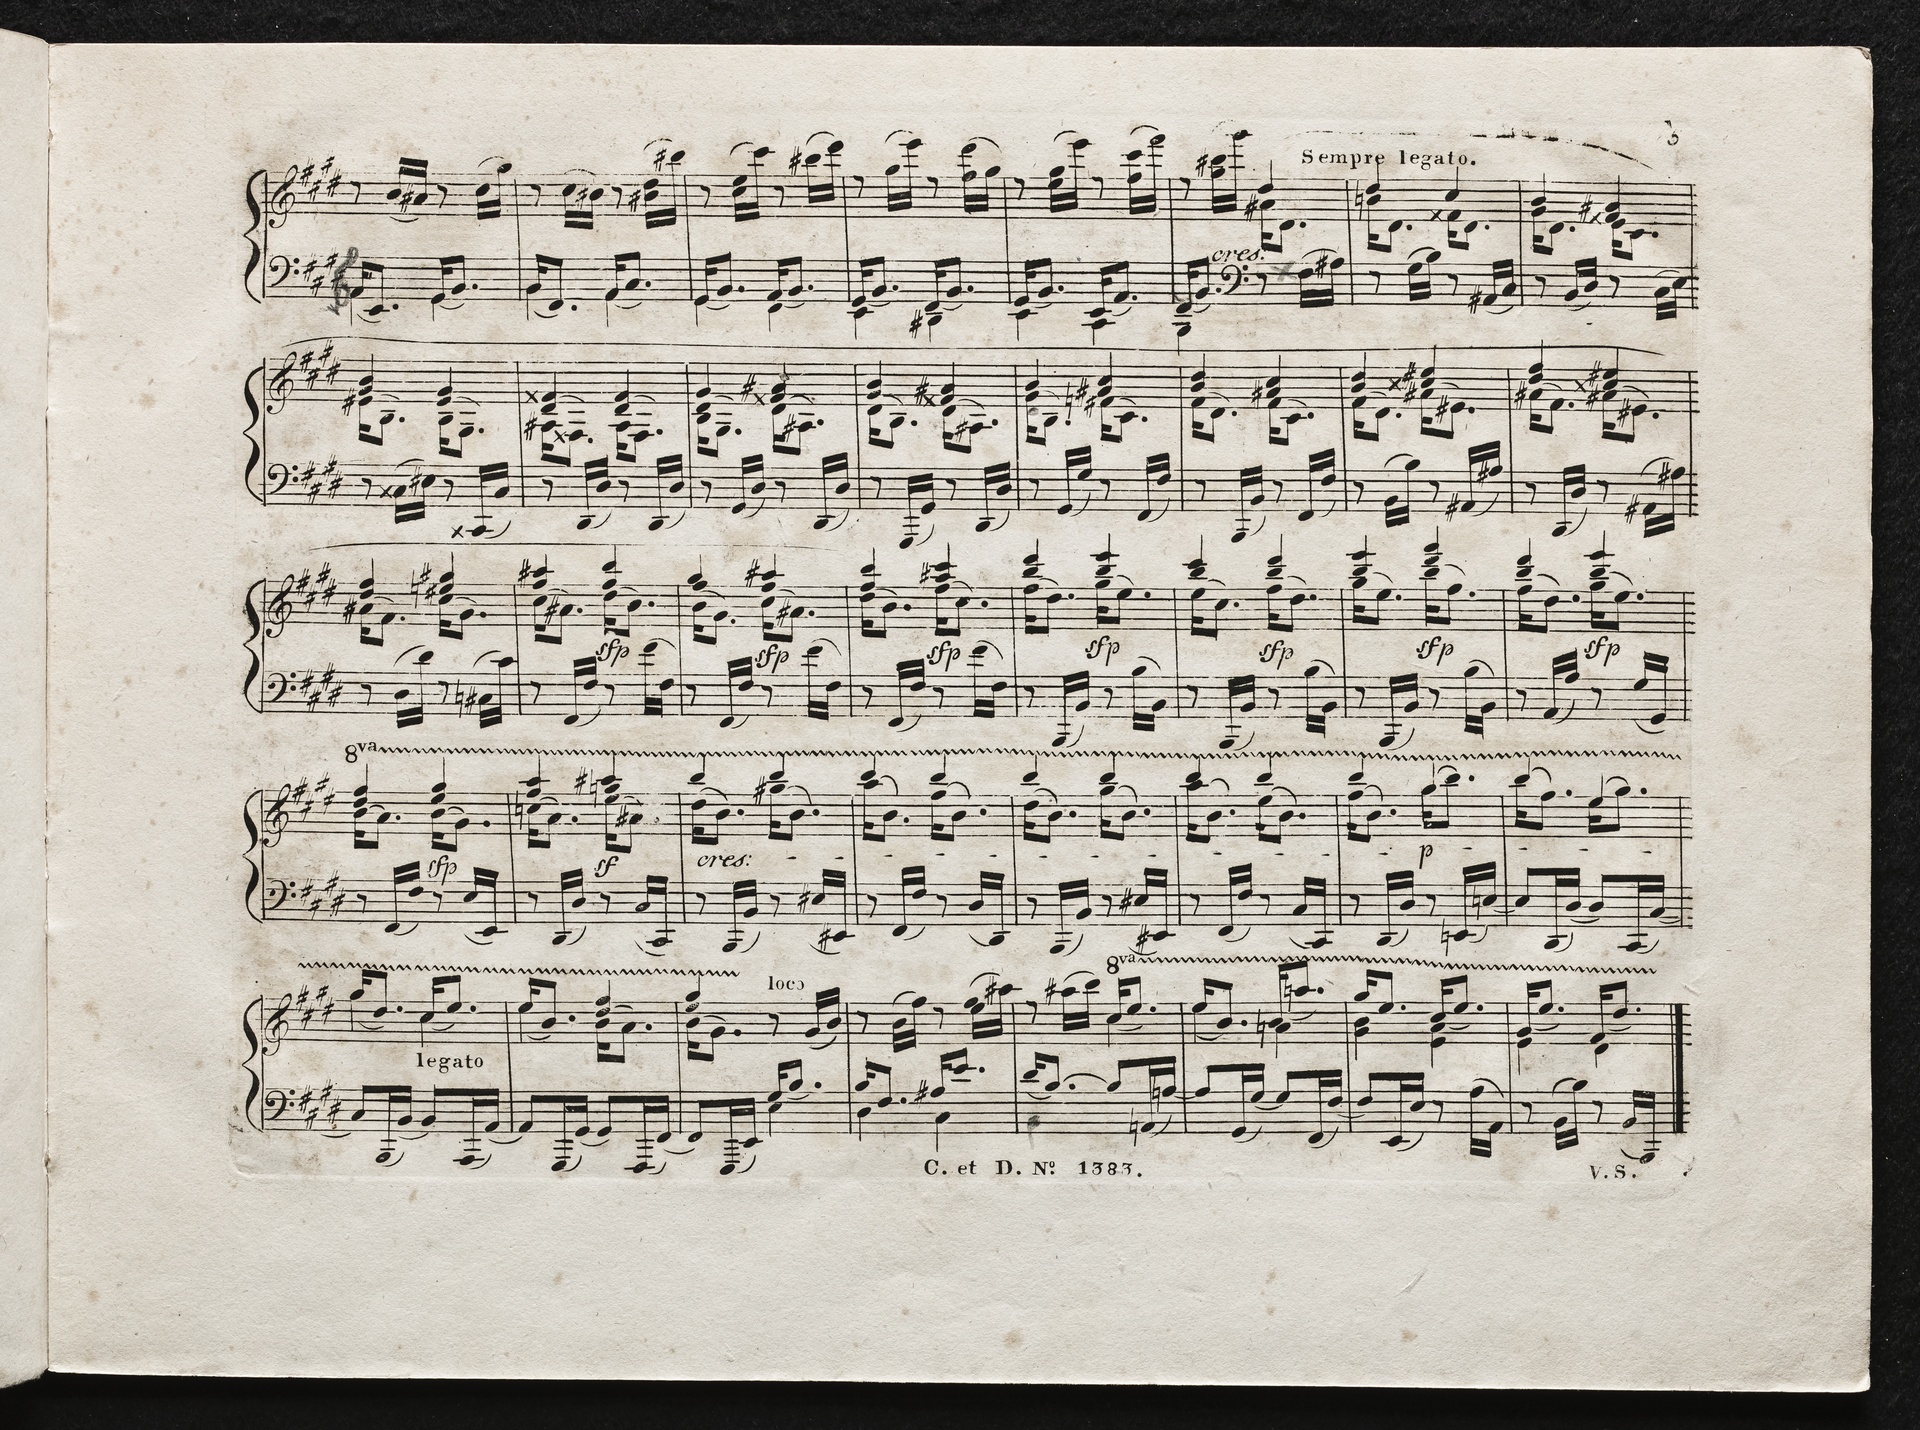 3
Sempre legato.
cres:
sfp sfp sfp sfp sfp sfp sfp
8va
sfp sf cres: - - - - - - - - - p - - -
loco
8va
legato
C. et D. No. 1383.
V.S.